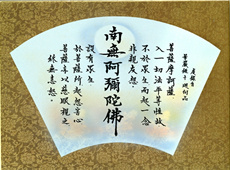 華嚴經十迴向品
菩薩摩訶薩
入一切法平等性故
不於眾生而起一念
非親友想
南無阿彌陀佛
設有眾生
於菩薩所起怨害心
菩薩亦以慈眼視之
終無恚怒